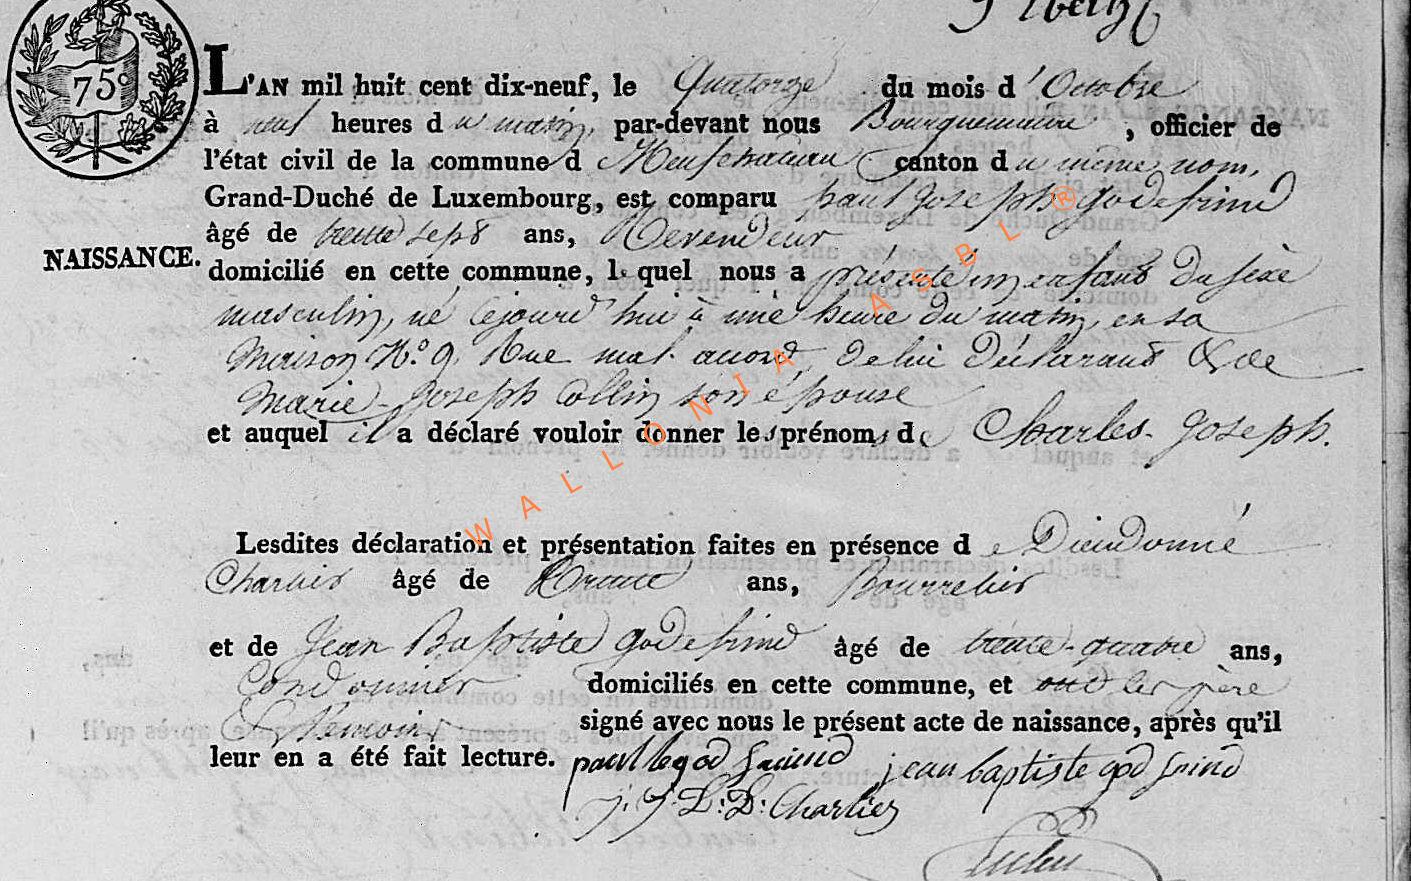 75c
L'AN mil huit cent dix-neuf, le Quatorze du mois d'Octobre
à neuf heures du matin, par-devant nous Bourguemaitre, officier de
l'état civil de la commune de Neufchateau canton du même nom,
Grand-Duché de Luxembourg, est comparu paul joseph godefrind
âgé de trente sept ans, Revendeur
NAISSANCE.
domicilié en cette commune, lequel nous a presenté un enfant du sexe
masculin, né cejourd'hui à une heure du matin, en sa
maison N.o 9, Rue mal accord, de lui déclarant & de
Marie-Joseph Collin son épouse
et auquel il a déclaré vouloir donner les prénoms de Charles-Joseph.
Lesdites déclaration et présentation faites en présence de Dieudonné
Charlier âgé de Trente ans, Bourrelier
et de Jean Baptiste godefrind âgé de trente-quatre ans,
Cordonnier domiciliés en cette commune, et ont les père
& témoins signé avec nous le présent acte de naissance, après qu'il
leur en a été fait lecture.
jean baptiste godfrind
j. j. L. D. Charlier
WALLONIA ASBL®